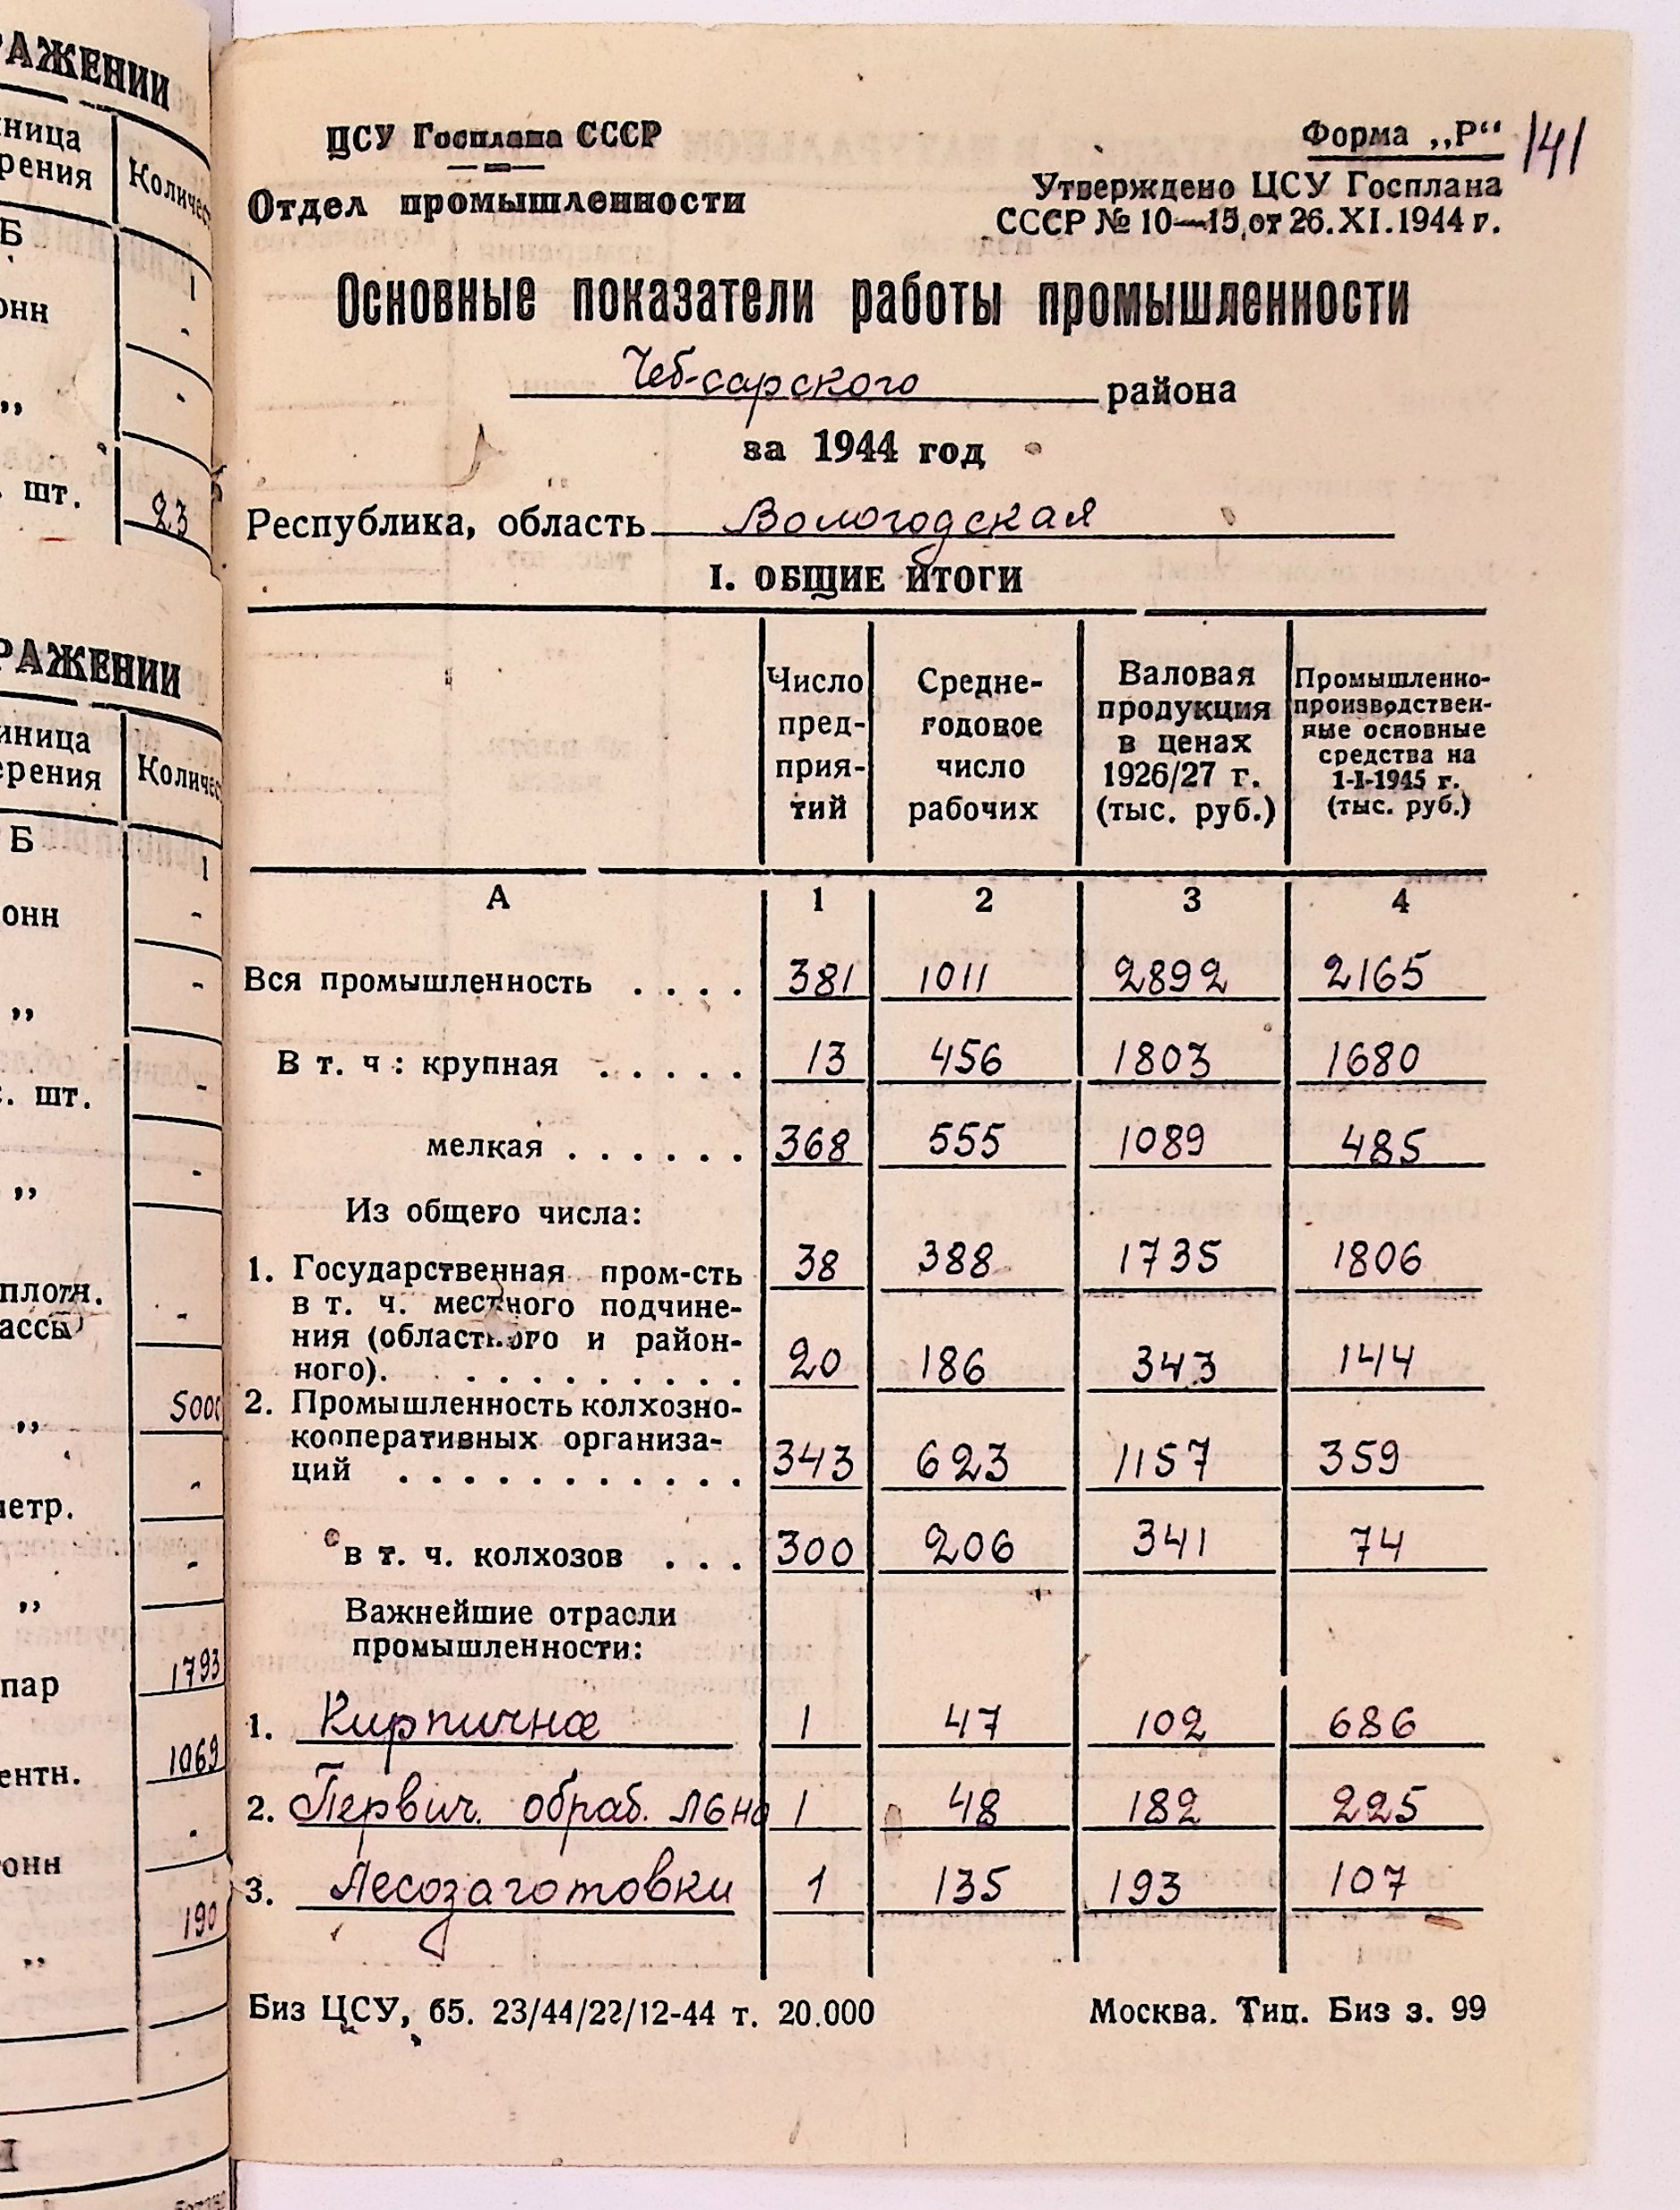 РАЖЕНИИ
Количес
Б
1
онн
-
„
-
шт.
23
РАЖЕНИИ
Количес
Б
1
онн
-
„
-
шт.
-
„
-
плотн.
ассы
-
„
5000
-
метр.
-
„
пар
1793
ентн.
1069
-
онн
190
„
ЦСУ Госплана СССР
Отдел промышленности
Форма „Р“
141
Утверждено ЦСУ Госплана
СССР № 10—15, от 26.XI.1944 г.
Основные показатели работы промышленности
Чеб-сарского района
за 1944 год
Республика, область Вологодская
I. ОБЩИЕ ИТОГИ
Число пред-прия-тий
Средне-годовое число рабочих
Валовая продукция в ценах 1926/27 г. (тыс. руб.)
Промышленно-производствен-ные основные средства на 1-I-1945 г. (тыс. руб.)
А 1 2 3 4
Вся промышленность . . . . 381 1011 2892 2165
В т. ч : крупная . . . . . 13 456 1803 1680
мелкая . . . . . . 368 555 1089 485
Из общего числа:
1. Государственная пром-сть 38 388 1735 1806
в т. ч. местного подчине-
ния (областного и район-
ного). . . . . . . . . . 20 186 343 144
2. Промышленность колхозно-
кооперативных организа-
ций . . . . . . . . . . . 343 623 1157 359
в т. ч. колхозов . . . 300 206 341 74
Важнейшие отрасли
промышленности:
1. Кирпичная 1 47 102 686
2. Первич. обраб. льна 1 48 182 225
3. Лесозаготовки 1 135 193 107
Биз ЦСУ, б5. 23/44/22/12-44 т. 20.000
Москва. Тип. Биз з. 99